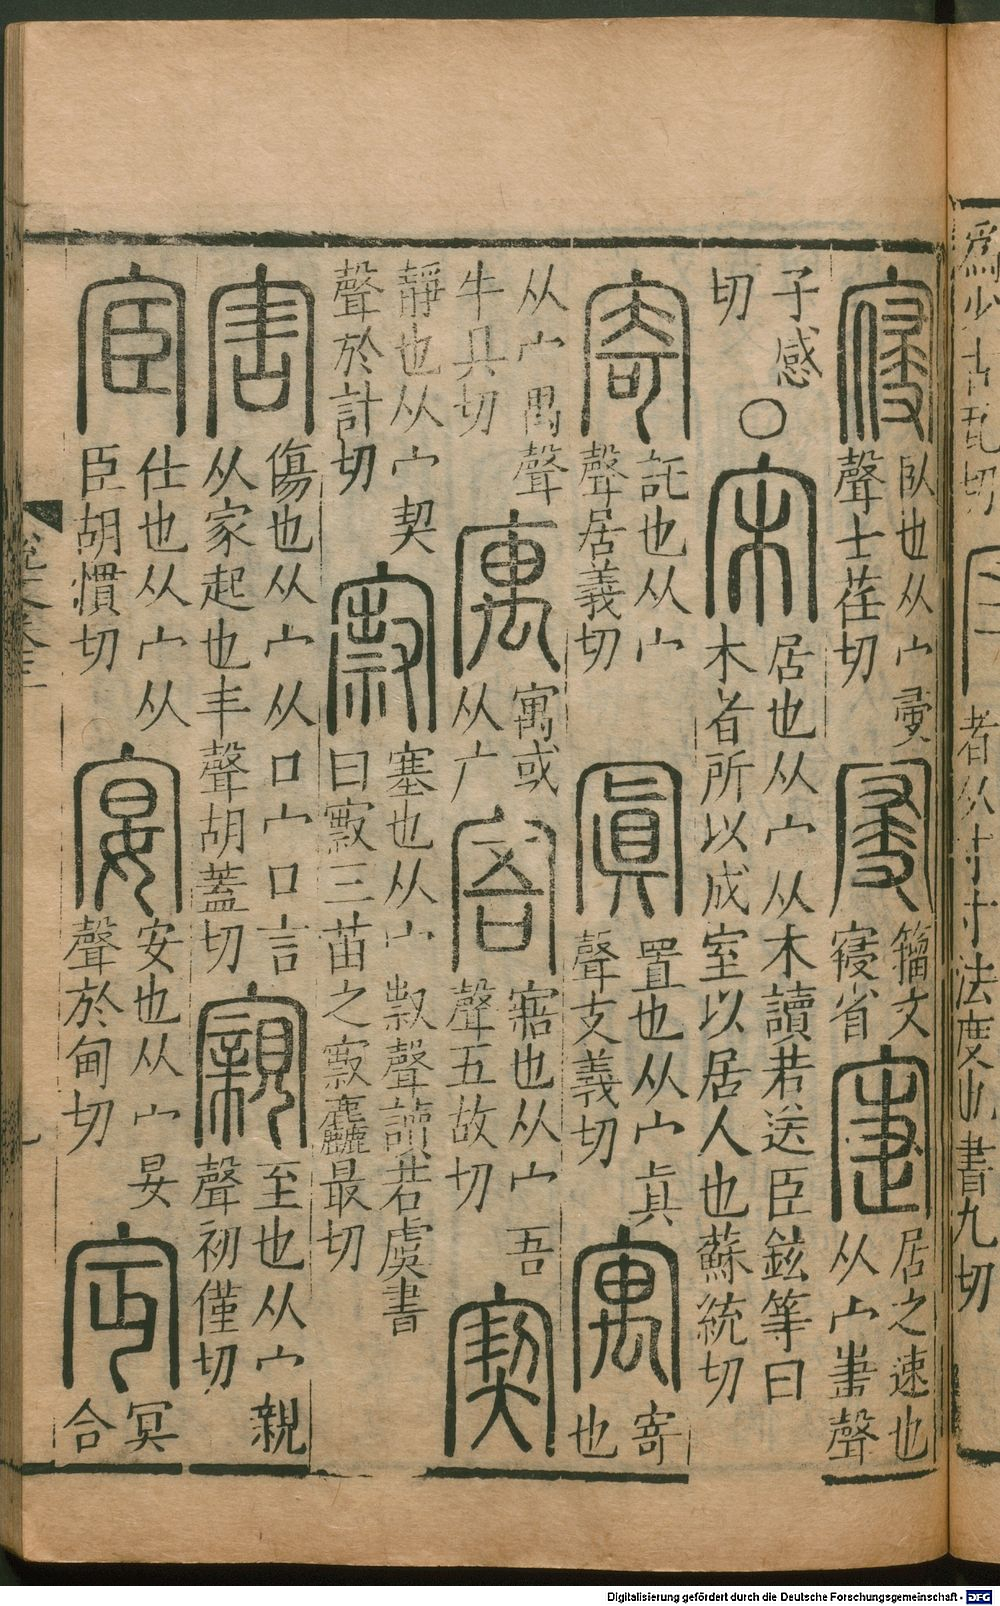 爲少古瓦切
守
者从寸寸法度也書九切
寑
臥也从宀
聲士荏切
𡪢
籒文
寑省
寁
居之速也
从宀疌聲
子感
切
○
宋
居也从宀从木讀若送臣鉉等曰
木者所以成室以居人也蘇統切
寄
託也从宀
聲居義切
寘
置也从宀眞
聲支義切
寓
寄
也
从宀禺聲
牛具切
庽
寓或
从广
㝓
寤也从宀吾
聲五故切
窫
靜也从宀契
聲於計切
㝮
塞也从宀㱁聲讀若虞書
曰㝮三苗之㝮麤最切
害
傷也从宀从口宀口言
从家起也丯聲胡蓋切
寴
至也从宀親
聲初僅切
宦
仕也从宀从
臣胡慣切
宴
安也从宀妟
聲於甸切
㝰
冥
合
Digitalisierung gefördert durch die Deutsche Forschungsgemeinschaft - DFG